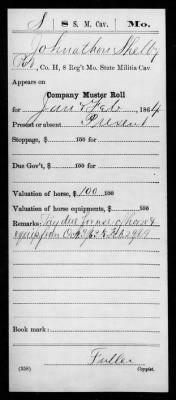 S | 8 S. M. Cav. | Mo.
Johnathan Shelby
Pvt, Co. H, 8 Reg't Mo. State Militia Cav.
Appears on
Company Muster Roll
for Jan & Feb, 1864
Present or absent Present
Stoppage, $ 100 for
Due Gov't, $ 100 for
Valuation of horse, $ 100 100
Valuation of horse equipments, $ 100
Remarks: Pay due for use of horse &
equip from
Book mark:
Fuller
(358) Copyist.